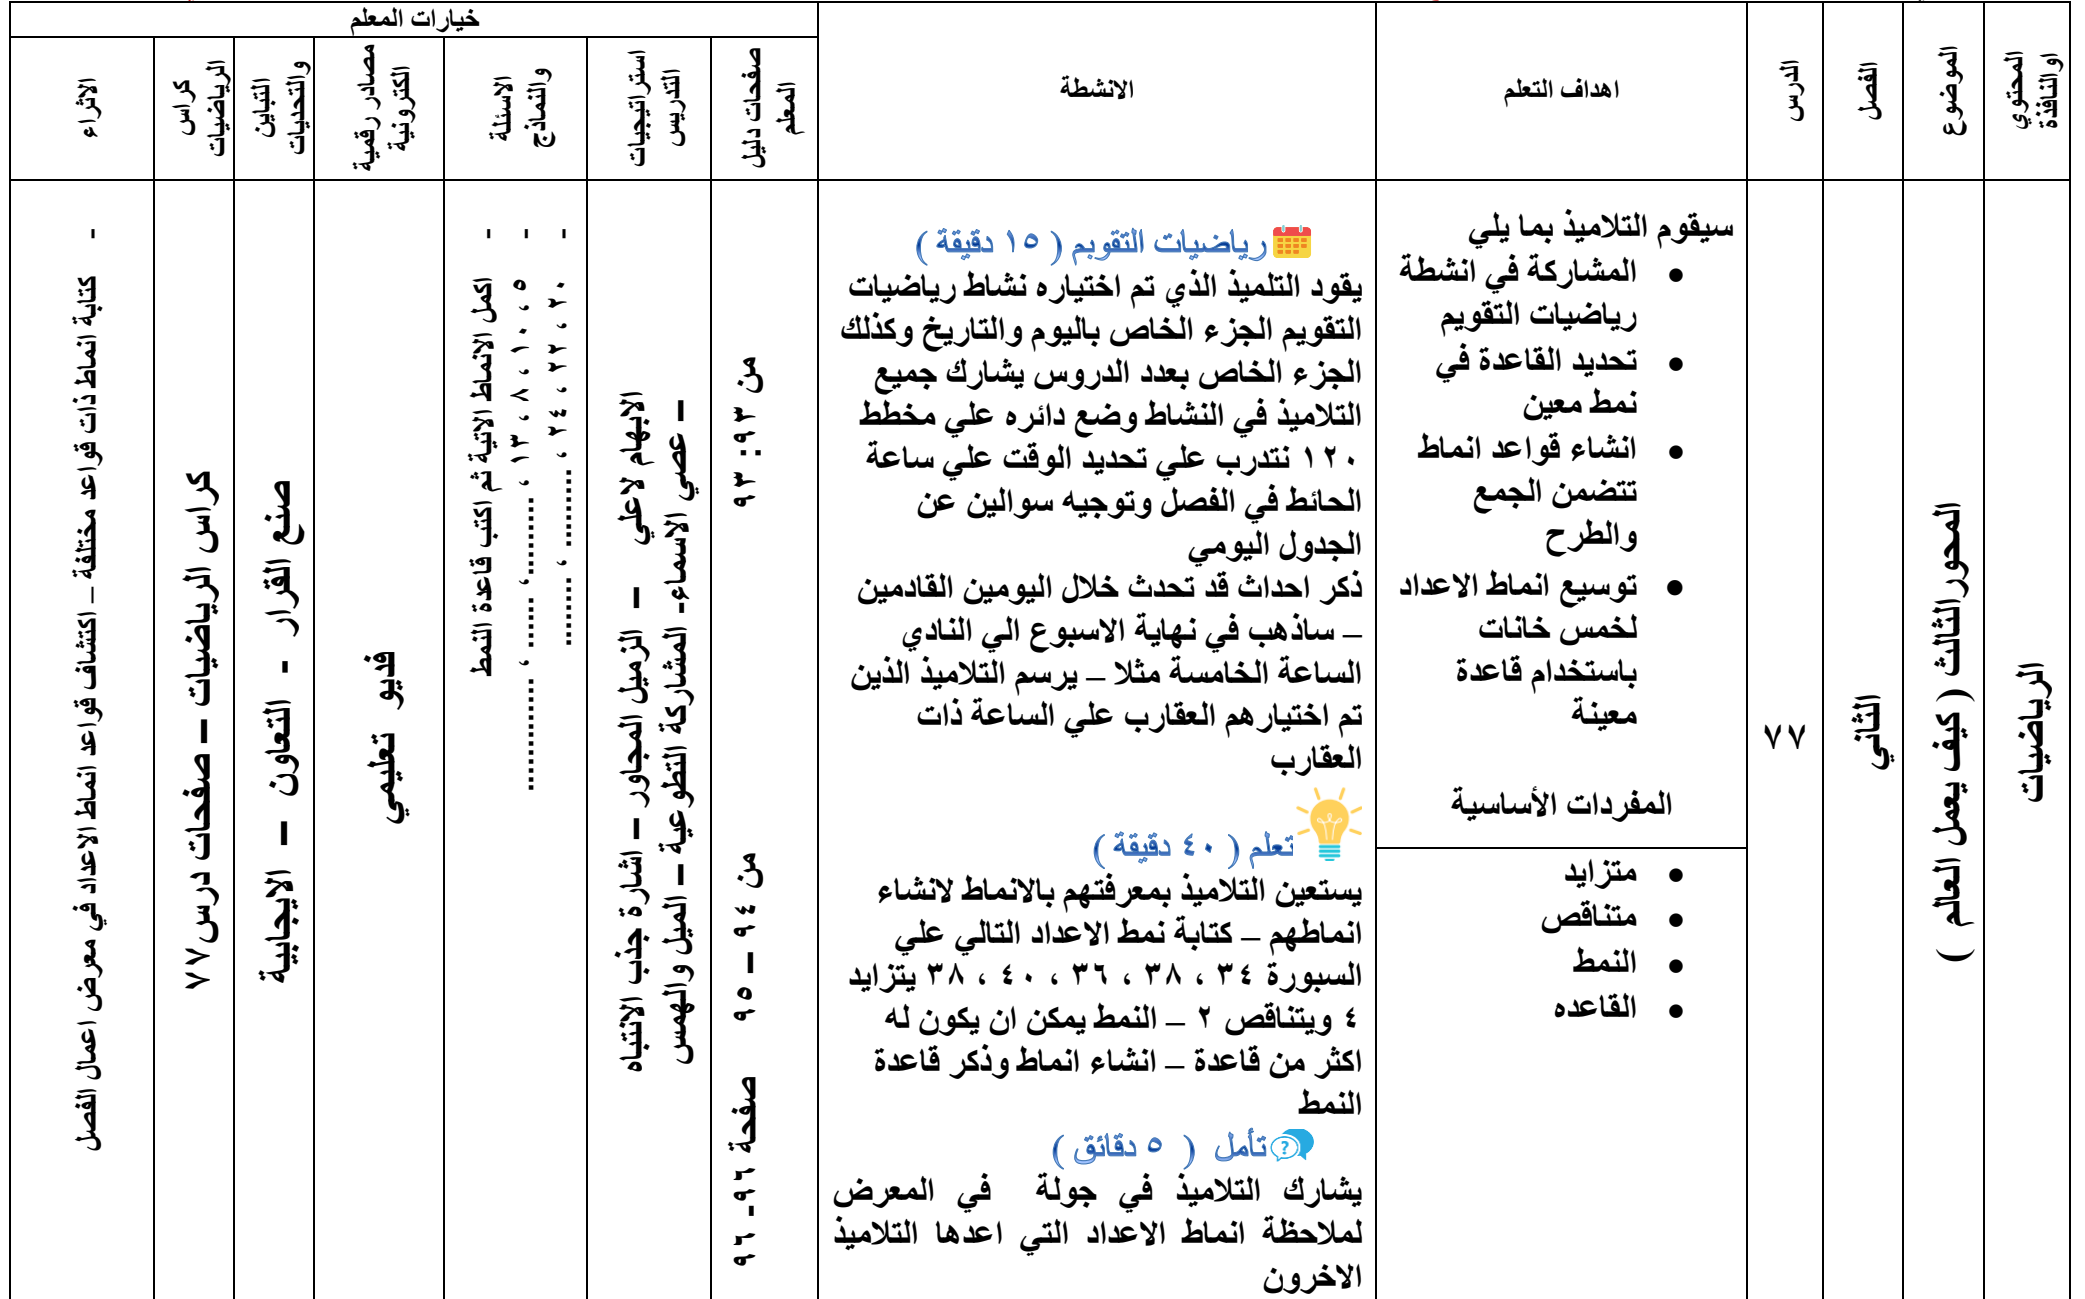 المحتوي
اوالنافذة
الموضوع
الفصل
الدرس
اهداف التعلم
الانشطة
خيارات المعلم
صفحات دليل
المعلم
استراتيجيات
التدريس
الاسئلة
والنماذج
مصادر رقمية
الكترونية
التباين
والتحديات
كراس
الرياضيات
الاثراء
الرياضيات
المحورالثالث ( كيف يعمل العالم )
الثاني
٧٧
سيقوم التلاميذ بما يلي
● المشاركة في انشطة
رياضيات التقويم
● تحديد القاعدة في
نمط معين
● انشاء قواعد انماط
تتضمن الجمع
والطرح
● توسيع انماط الاعداد
لخمس خانات
باستخدام قاعدة
معينة
المفردات الأساسية
● متزايد
● متناقص
● النمط
● القاعده
رياضيات التقويم ( ١٥ دقيقة )
يقود التلميذ الذي تم اختياره نشاط رياضيات
التقويم الجزء الخاص باليوم والتاريخ وكذلك
الجزء الخاص بعدد الدروس يشارك جميع
التلاميذ في النشاط وضع دائره علي مخطط
١٢٠ نتدرب علي تحديد الوقت علي ساعة
الحائط في الفصل وتوجيه سوالين عن
الجدول اليومي
ذكر احداث قد تحدث خلال اليومين القادمين
– ساذهب في نهاية الاسبوع الي النادي
الساعة الخامسة مثلا – يرسم التلاميذ الذين
تم اختيارهم العقارب علي الساعة ذات
العقارب
تعلم ( ٤٠ دقيقة )
يستعين التلاميذ بمعرفتهم بالانماط لانشاء
انماطهم – كتابة نمط الاعداد التالي علي
السبورة ٣٤ ، ٣٨ ، ٣٦ ، ٤٠ ، ٣٨ يتزايد
٤ ويتناقص ٢ – النمط يمكن ان يكون له
اكثر من قاعدة – انشاء انماط وذكر قاعدة
النمط
تأمل ( ٥ دقائق )
يشارك التلاميذ في جولة في المعرض
لملاحظة انماط الاعداد التي اعدها التلاميذ
الاخرون
من ٩٣: ٩٣
من ٩٤ – ٩٥
صفحة ٩٦- ٩٦
الابهام لاعلي – الزميل المجاور – اشارة جذب الانتباه
– عصي الاسماء- المشاركة التطوعية – الميل والهمس
- اكمل الانماط الاتية ثم اكتب قاعدة النمط
- ٥ ، ١٠ ، ٨ ، ١٣ ، .........، ...... ، ............
- ٢٠ ، ٢٢ ، ٢٤ ، ......... ، ........
فديو تعليمي
صنع القرار - التعاون – الايجابية
كراس الرياضيات – صفحات درس٧٧
- كتابة انماط ذات قواعد مختلفة – اكتشاف قواعد انماط الاعداد في معرض اعمال الفصل